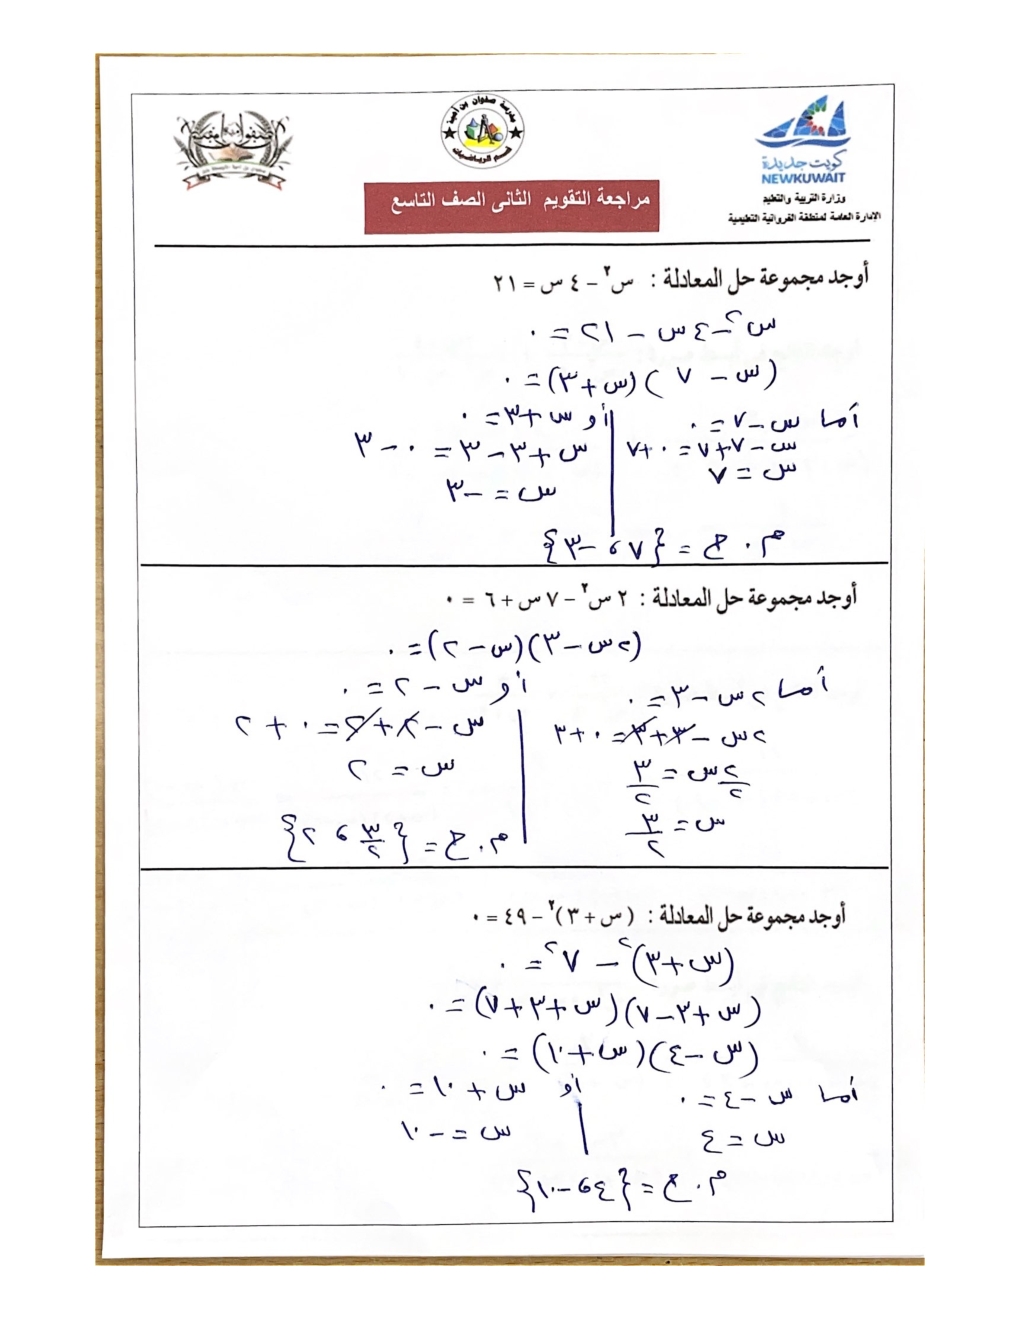 مدرسة صفوان بن أمية
قسم الرياضيات
كويت جديدة
NEWKUWAIT
وزارة التربية والتعليم
الإدارة العامة لمنطقة الفروانية التعليمية
مراجعة التقويم الثانى الصف التاسع
أوجد مجموعة حل المعادلة : س² − ٤ س = ٢١
س² − ٤س − ٢١ = ٠
(س − ٧)(س + ٣) = ٠
أما س − ٧ = ٠ أو س + ٣ = ٠
س − ٧ + ٧ = ٠ + ٧ س + ٣ − ٣ = ٠ − ٣
س = ٧ س = −٣
م . ح = {٧ ، −٣}
أوجد مجموعة حل المعادلة : ٢ س² − ٧ س + ٦ = ٠
(٢س − ٣)(س − ٢) = ٠
أما ٢س − ٣ = ٠ أو س − ٢ = ٠
٢س − ٣ + ٣ = ٠ + ٣ س − ٢ + ٢ = ٠ + ٢
٢س/٢ = ٣/٢ س = ٢
س = ٣/٢
م . ح = {٣/٢ ، ٢}
أوجد مجموعة حل المعادلة : (س + ٣)² − ٤٩ = ٠
(س + ٣)² − ٧² = ٠
(س + ٣ − ٧)(س + ٣ + ٧) = ٠
(س − ٤)(س + ١٠) = ٠
أما س − ٤ = ٠ أو س + ١٠ = ٠
س = ٤ س = −١٠
م . ح = {٤ ، −١٠}